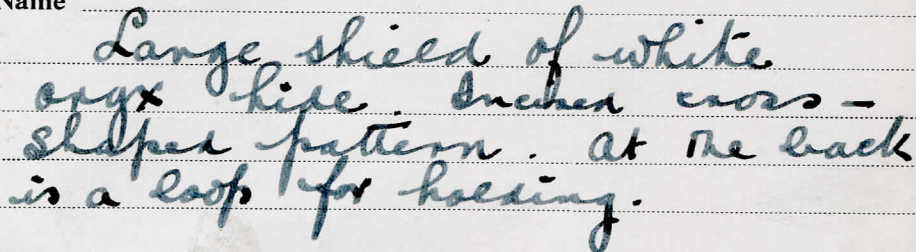 Name
Large shield of white
oryx hide. Incised cross-
shaped pattern. At the back
is a loop for holding.